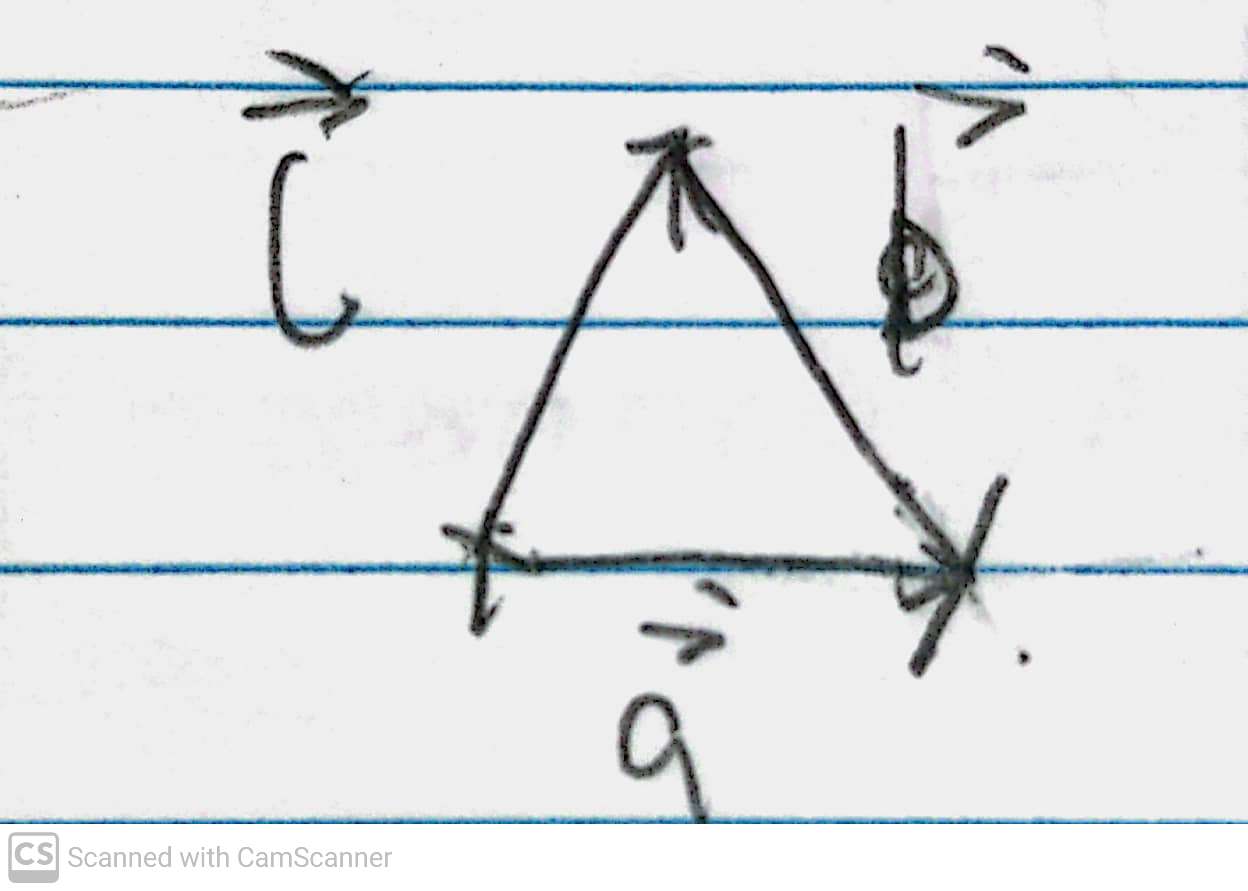 c b
a
CS Scanned with CamScanner